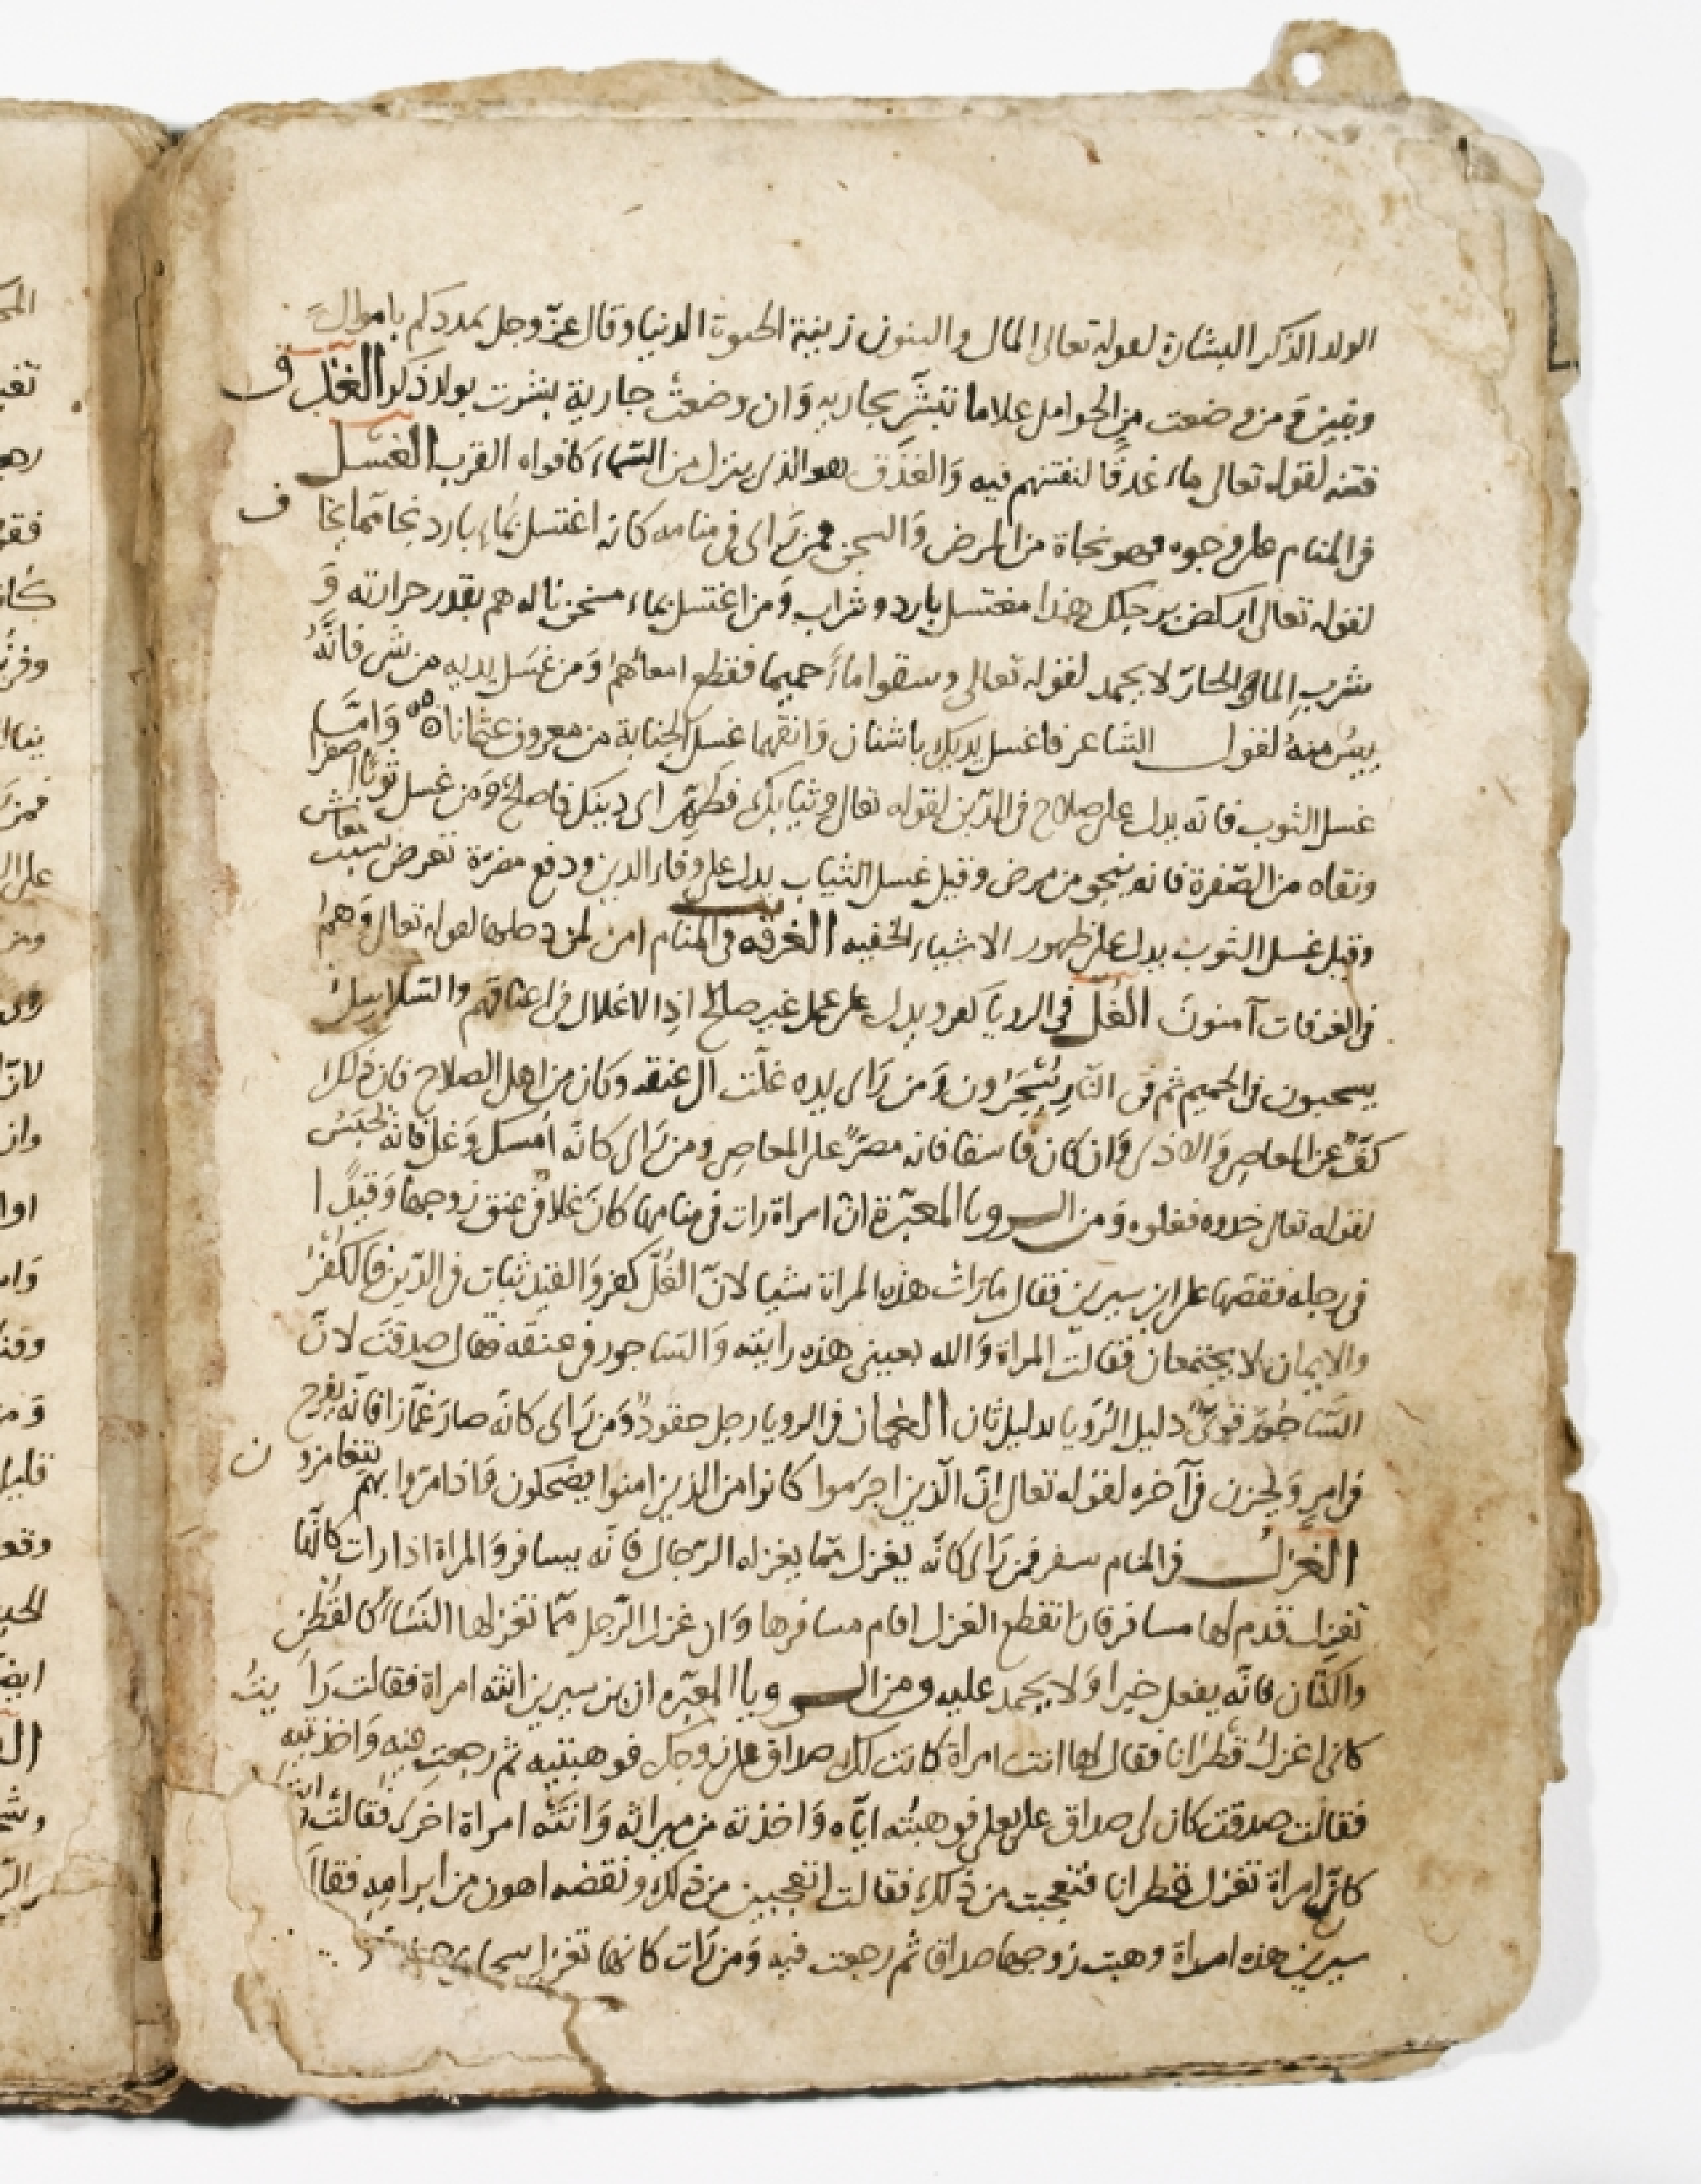 الولد الذكر البشارة لقوله تعالى المال والبنون زينة الحيوة الدنيا وقال عزّ وجل يمددكم باموال
وبنين وَمن وضعت من الحوامل غلاما تبشّر بجاريه وَان وضعت جارية بشرت بولد ذكر الغدق
فتنه لقوله تعالى ماء غدقًا لنفتنهم فيه وَالغدَق هو الذى ينزل من السماء كافواه القرب الغسل
فى المنام على وجوه وهو نجاة من المرض وَالسجن فمن رَاى فى منامه كانه اغتسل بمَاء بارد نجا مما يخا ف
لقوله تعالى اركض برجلك هذا مغتسل بارد وشراب وَمن اغتسل بماء مسخن ناله هم بقدر حرارته وَ
شرب الماء الحارّ لا يحمد لقوله تعالى وسقوا ماءً حميما فقطع امعاءهم وَمن غسَل يديه من شى فانّهُ
ييئس منهُ لقول الشاعر فاغسل يديك باشنان وَانقهما غسل الجنابة من معروف عثمانا وَامّا
غسل الثوب فانه يدل على صلاح فى الدّين لقوله تعالى وثيابك فطهّر اى دينك فاصلح وَمن غسل ثوبًا اصفرا
ونقاه من الصّفرة فانه ينجو من مرض وقيل غسل الثياب يدل على وفاء الدين ودفع مضرة تعرض بسبب معاش
وقيل غسل الثوب يدل على ظهور الاشياء الخفيه الغرفه فى المنام امن لمن دخلها لقوله تعالى وَهمُ
فى الغرفات آمنونَ الغُل فى الرويا كفر ويدل على عمل غير صالح اذِ الاغلال فى اعناقهم والسّلاسلُ
يسحبون فى الحميم ثم فى النّارِ يُسْجَرُون وَمن رَاى يده غلّت الى عنقه وكان من اهل الصلاح فان ذلك
كفّ عن المعاصِى وَالاذى وَان كان فاسقا فانه مصرّ على المعاصِى ومن رَاى كانّه اُمسك وَغل فانه يُحبَسُ
لقوله تعالى خذوه فغلوه وَمن الرويا المعبّرة انّ امراة رات فى منامها كانّ غلا فى عنق زوجها وَقيدًا
فى رجله فقصّها على ابن سيرين فقال ما رَات هذه المراة شيا لانّ الغُلّ كفر وَالقيد ثبات فى الدّين فالكفرُ
والايمان لا يجتمعان فقالت المراة وَالله بعينى هذه رايته وَالسّاجور فى عنقه فقال صدقتَ لانّ
السّاجور قوىٌ دليل الرُؤيا بدليل ثان الغماز فى الرويا رجل حقود وَمن رَاى كانّه صارَ غمّازا فانّه يفرح
فى امرٍ وَيحزن فى آخره لقوله تعالى انّ الّذين اجرَموا كانوا من الذين امنوا يضحكون وَاذا مرّوا بهم يتغامزو ن
الغزل فى المنام سفر فمن رَاى كانّه يغزل ممّا يغزله الرّجال فانّه يسافر وَالمراة اذا رات كانّها
تغزل قدم لها مسافر فان انقطع الغزل اقام مسافرها وَان غزل الرّجل ممّا تغزلها النساء كالقُطن
والكتّان فانّه يفعل خيرا وَلا يحمد عليه ومن الرويا المعبّره ان بن سيرين اتته امراة فقالت رَا يتُ
كانى اغزلُ قطرَانا فقال لها انت امراة كانت لك صداق على زوجك فوهبتيه ثم رجعت فيه وَاخذتيه
فقالت صدقت كان لى صداق على بعلى فوهبتُه ايّاه وَاخذته من ميراثه وَاتَتَه امراة اخرى فقالت ارَى
كانّى امراة تغزل قطرانا فتعجبت من ذلك فقالت اتعجبين من ذلك ونقضه اهون من ابرامه فقال
سيرين هذه امراة وهبت زوجها صداقا ثم رجعت فيه وَمن رَات كانها تغزل